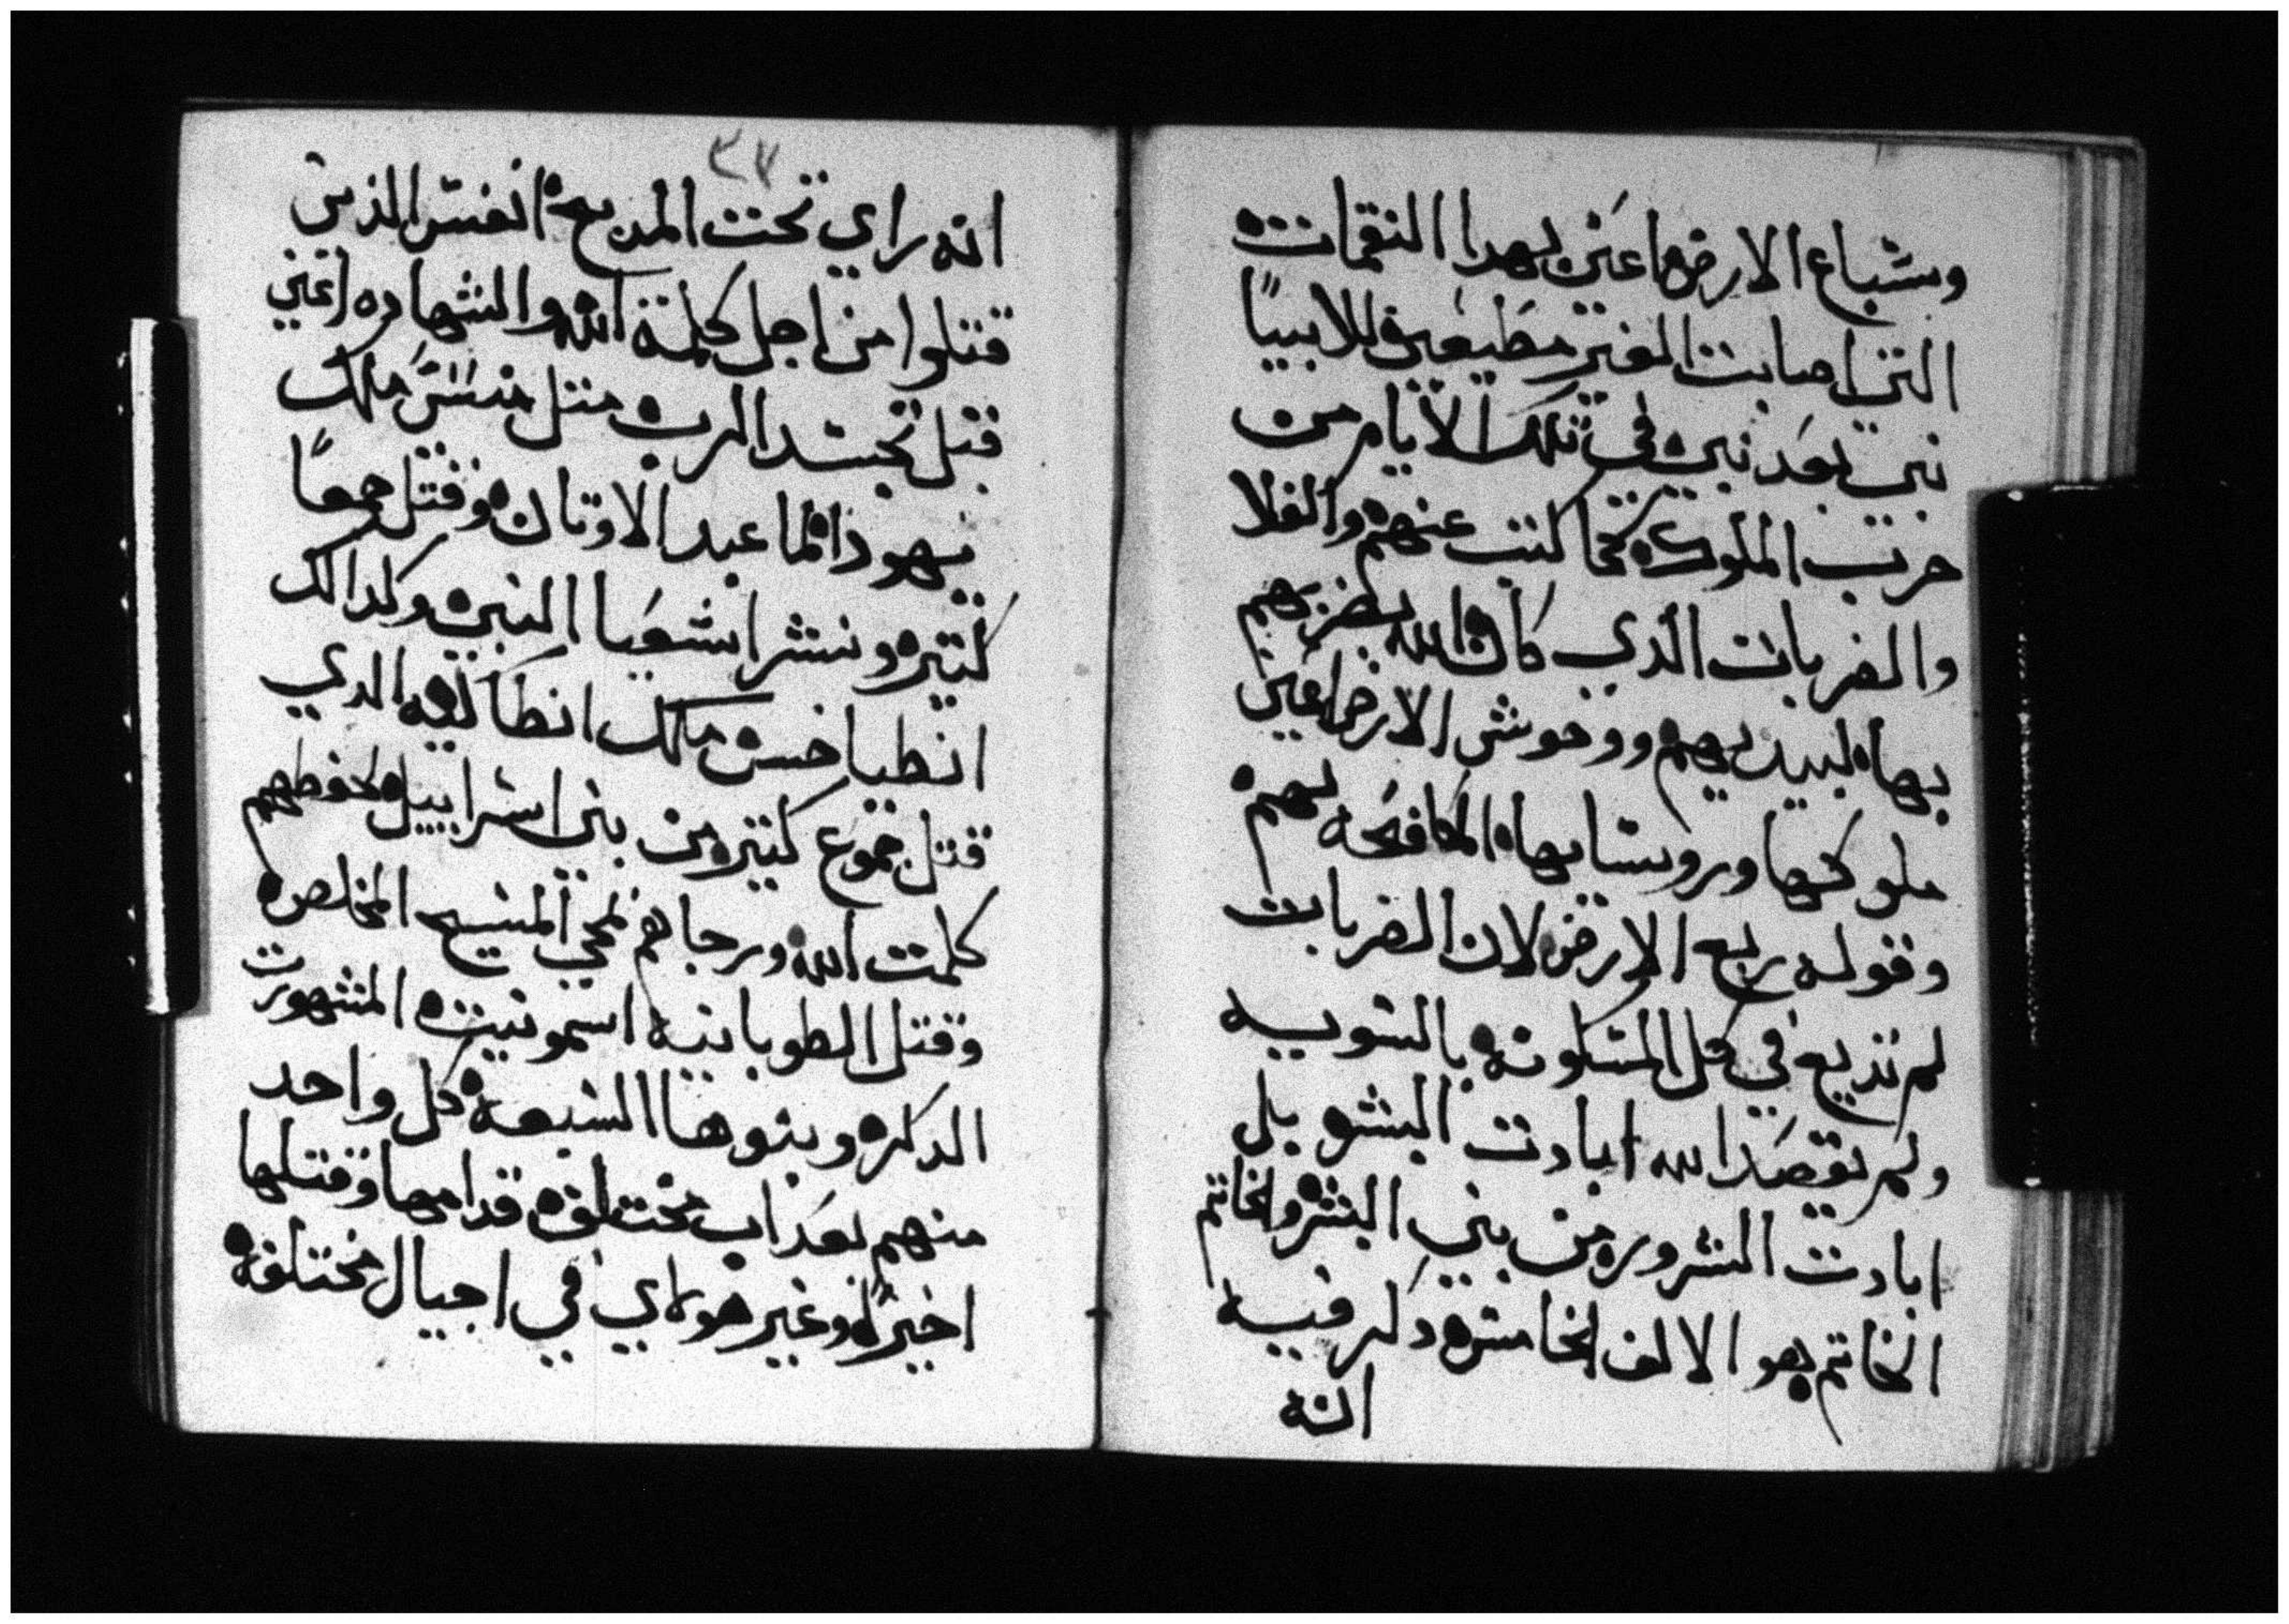 وسباع الارض اعني بهدا النقمات
التي اصابت الغير مطيعين للانبيا
نبي بعد نبي في تلك الايام من
حرب الملوك كما كتب عنهم والغلا
والضربات الذي كان الله يضربهم
بها لبيديهم ووحوش الارض اعني
ملوكها وروسايها المكافحه لهم
وقوله ربع الارض لان الضربات
لم تذيع في كل المسكونه بالسويه
ولم يقصد الله ابادت البشر بل
ابادت الشرور من بني البشر والخاتم
الخاتم هو الالف الخامس ذكر فيه
انه
٣٧
انه راي تحت المدبح انفس الذين
قتلوا من اجل كلمة الله والشهاده اعني
قبل تجسد الرب متل منسى ملك
يهوذا لما عبد الاوتان وقتل جمعا
كتير ونشر اشعيا النبي وكدالك
انطياخس ملك انطاكيه الدي
قتل جموع كتيره من بني اسراييل لحفظهم
كلمت الله ورجاهم لمجي المسيح المخلص
وقتل الطوبانيه اسمونيت المشهورت
الدكر وبنوها السبعه كل واحد
منهم بعداب مختلفه قدامها وقتلها
اخيرا وغير هولاي في اجيال مختلفه